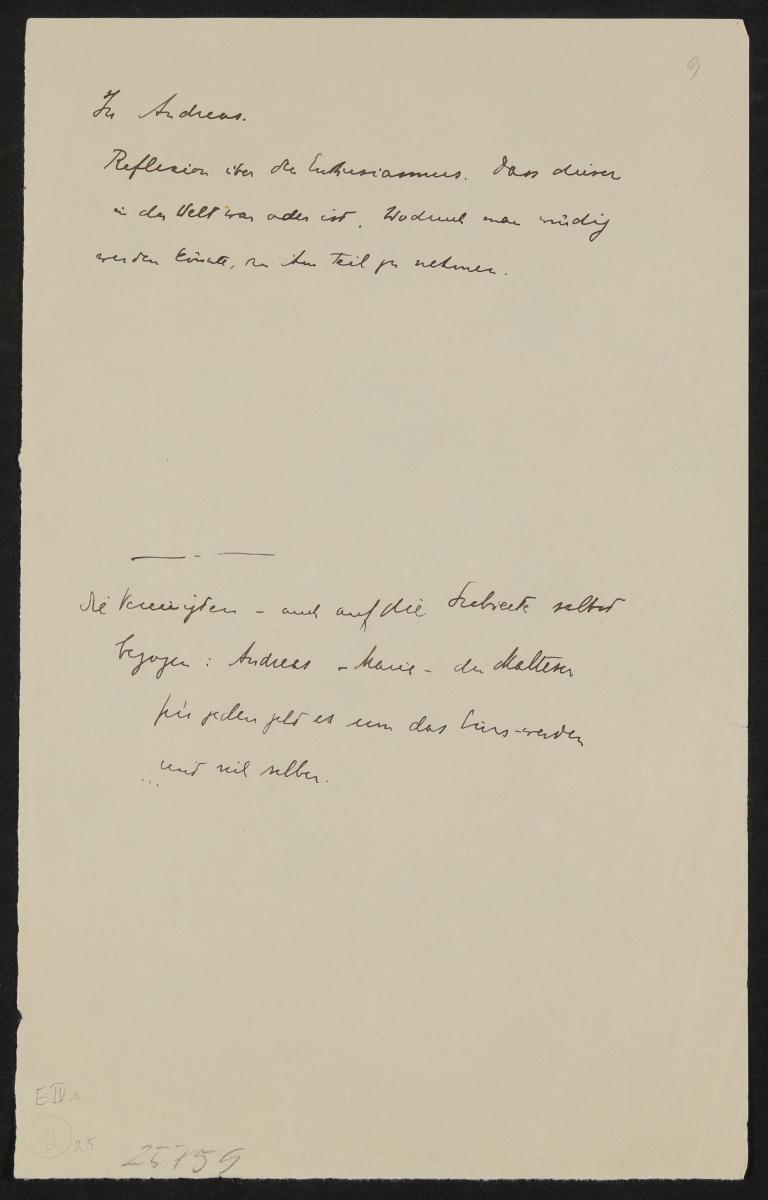 9)
Zu Andreas.
Reflexion über den Enthusiasmus. Dass dieser
in der Welt war oder ist, Wodurch man würdig
werden könnte, an ihm Teil zu nehmen.
Die Vereinigten – auch auf die Subiecte selbst
bezogen: Andreas – Marie – der Malteser
für jeden geht es um das Eins-werden
mit sich selber.
E IV A
2 25
25759